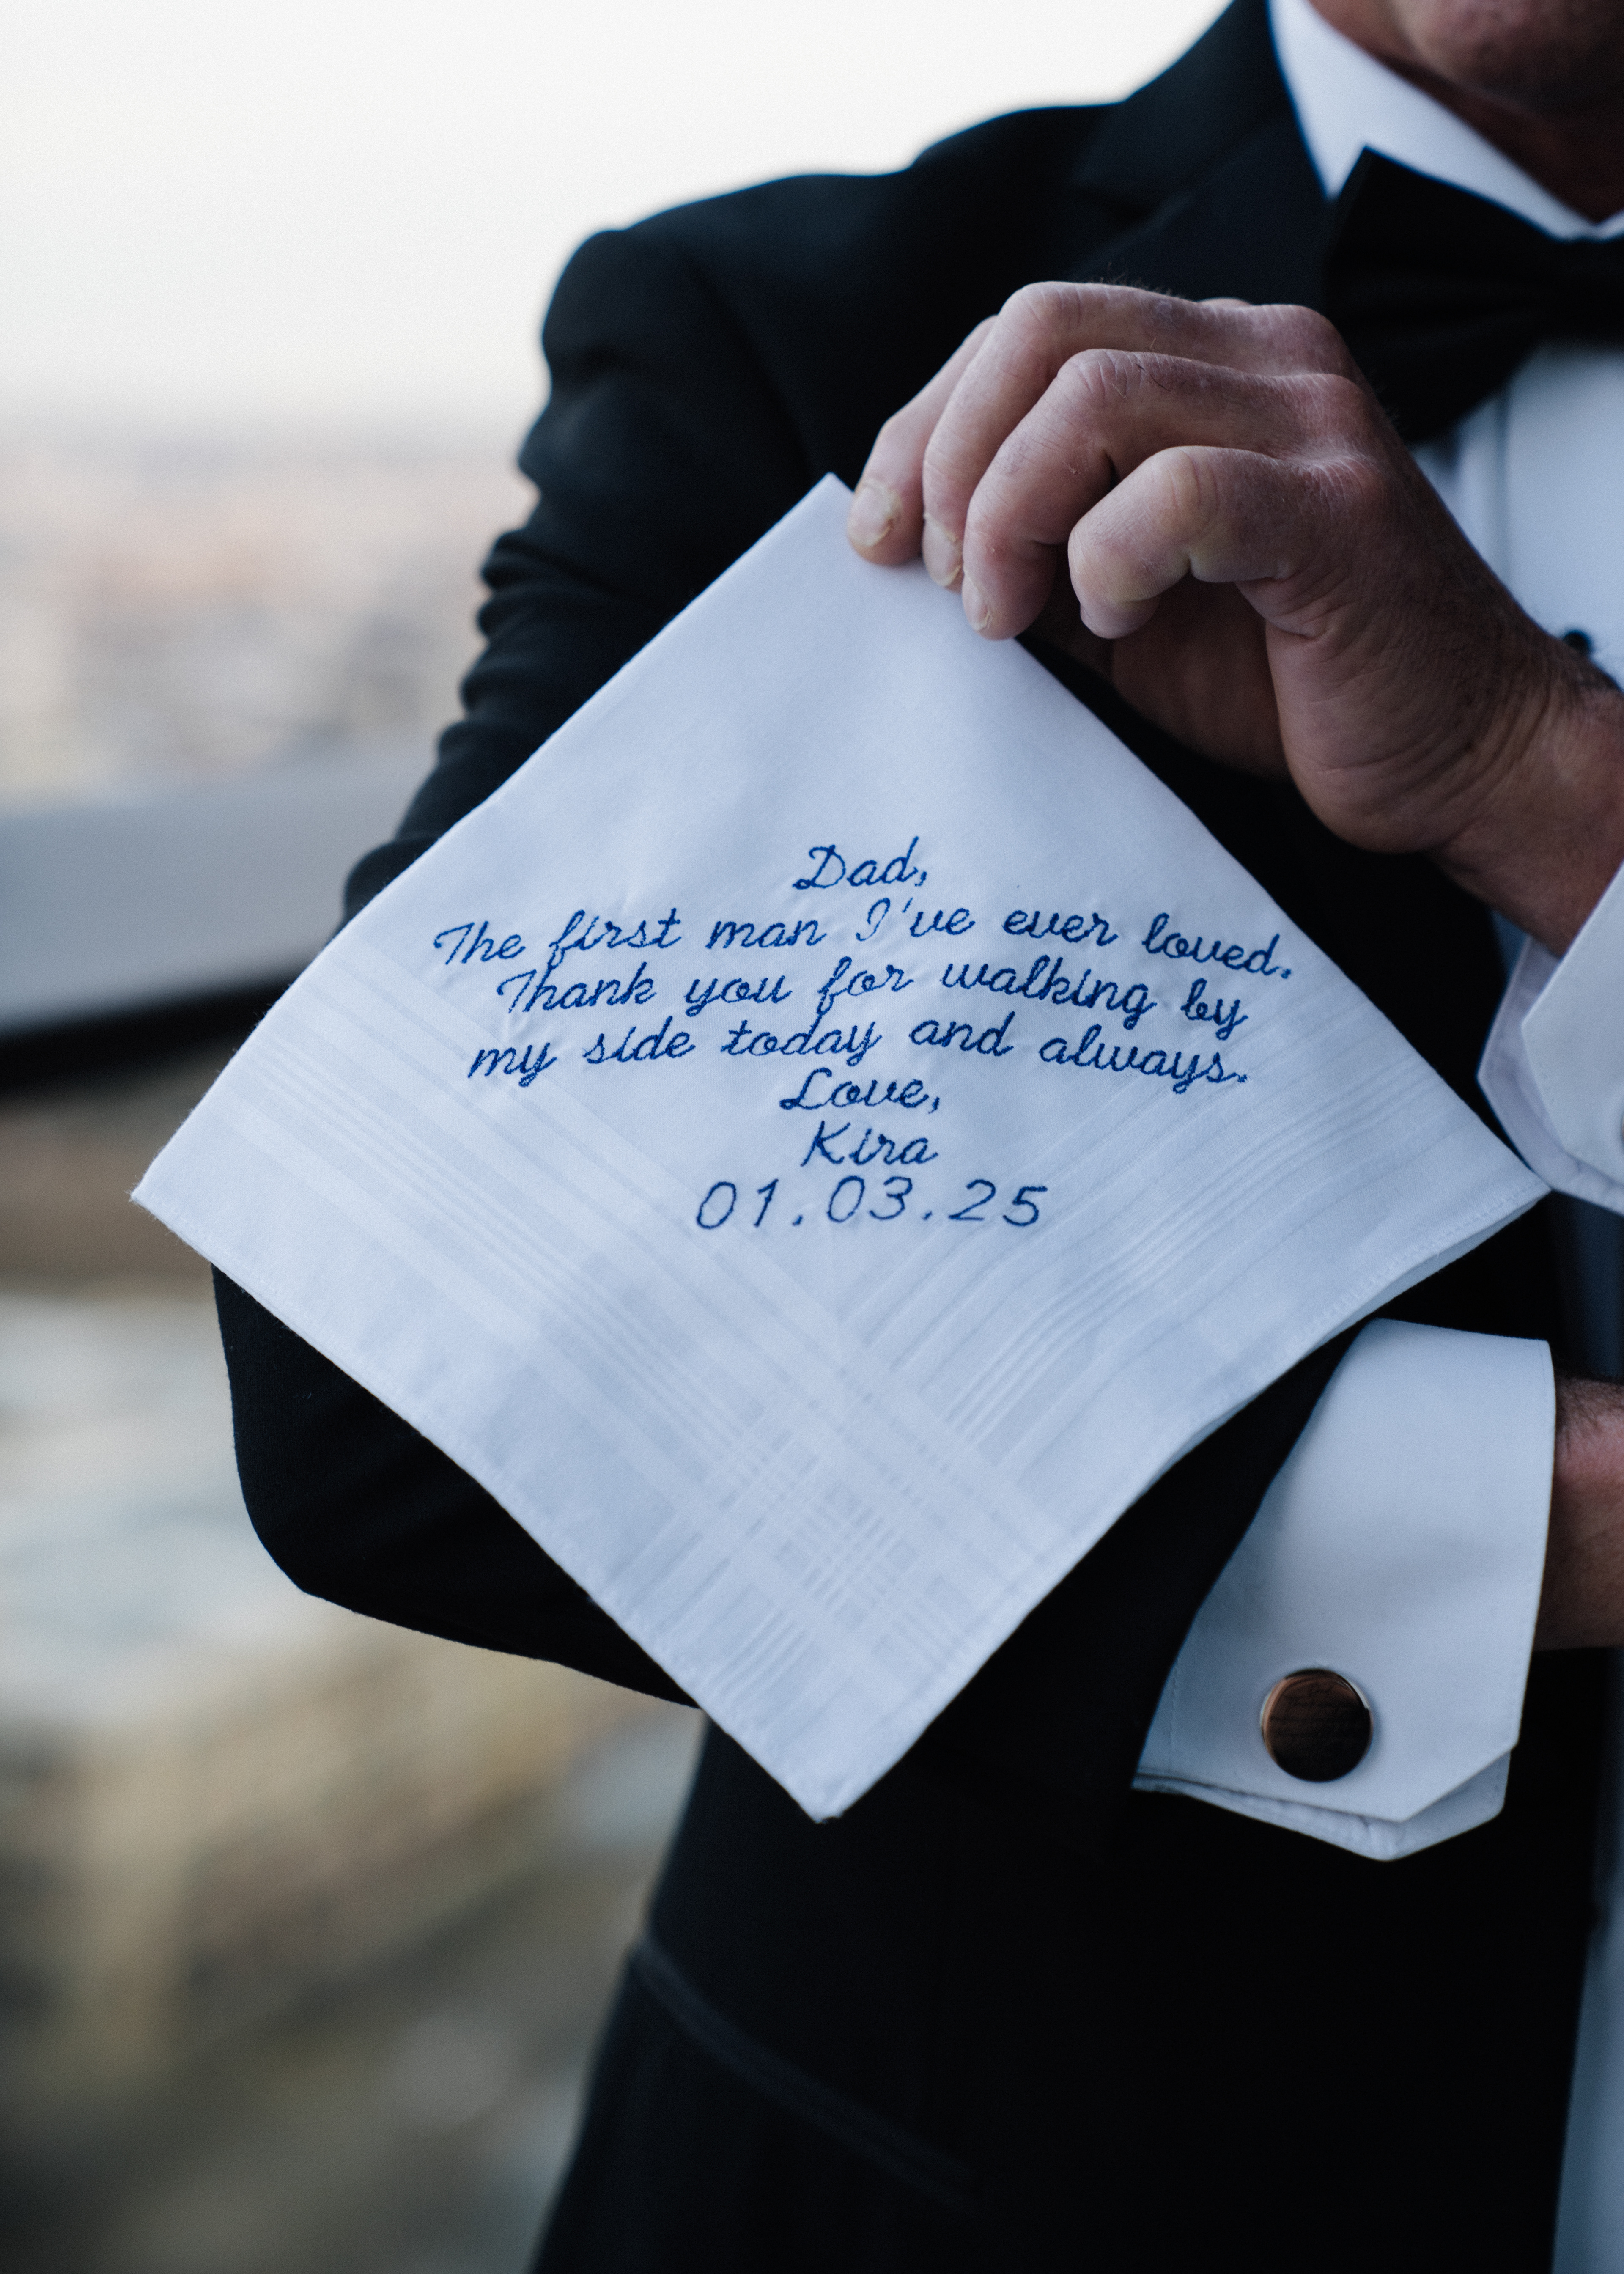 Dad,
The first man I've ever loved.
Thank you for walking by
my side today and always.
Love,
Kira
01.03.25